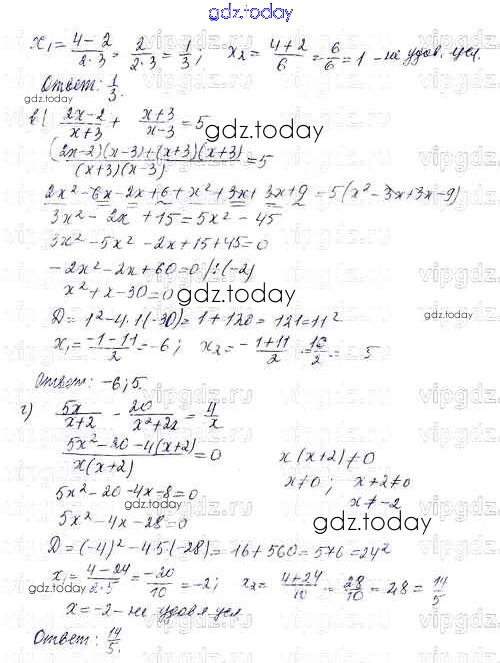 gdz.today
x₁ = (4-2)/(2·3) = 2/(2·3) = 1/3; x₂ = (4+2)/6 = 6/6 = 1 - не удов. усл.
Ответ: 1/3.
gdz.today
в) (2x-2)/(x+3) + (x+3)/(x-3) = 5
gdz.today
((2x-2)(x-3)+(x+3)(x+3))/((x+3)(x-3)) = 5
2x² - 6x - 2x + 6 + x² + 3x + 3x + 9 = 5(x² - 3x + 3x - 9)
3x² - 2x + 15 = 5x² - 45
3x² - 5x² - 2x + 15 + 45 = 0
-2x² - 2x + 60 = 0 /:(-2)
x² + x - 30 = 0
gdz.today
D = 1² - 4·1(-30) = 1 + 120 = 121 = 11²
gdz.today
x₁ = (-1-11)/2 = -6; x₂ = -(1+11)/2 = 10/2 = 5
Ответ: -6; 5.
г) 5x/(x+2) - 20/(x²+2x) = 4/x
(5x² - 20 - 4(x+2))/(x(x+2)) = 0
x(x+2) ≠ 0
x ≠ 0; x+2 ≠ 0
x ≠ -2
5x² - 20 - 4x - 8 = 0
gdz.today
5x² - 4x - 28 = 0
gdz.today
D = (-4)² - 4·5·(-28) = 16 + 560 = 576 = 24²
x₁ = (4-24)/(2·5) = -20/10 = -2; x₂ = (4+24)/10 = 28/10 = 2,8 = 14/5
gdz.today
x = -2 - не удов-я усл
Ответ: 14/5.
gdz.today
vipgdz.ru